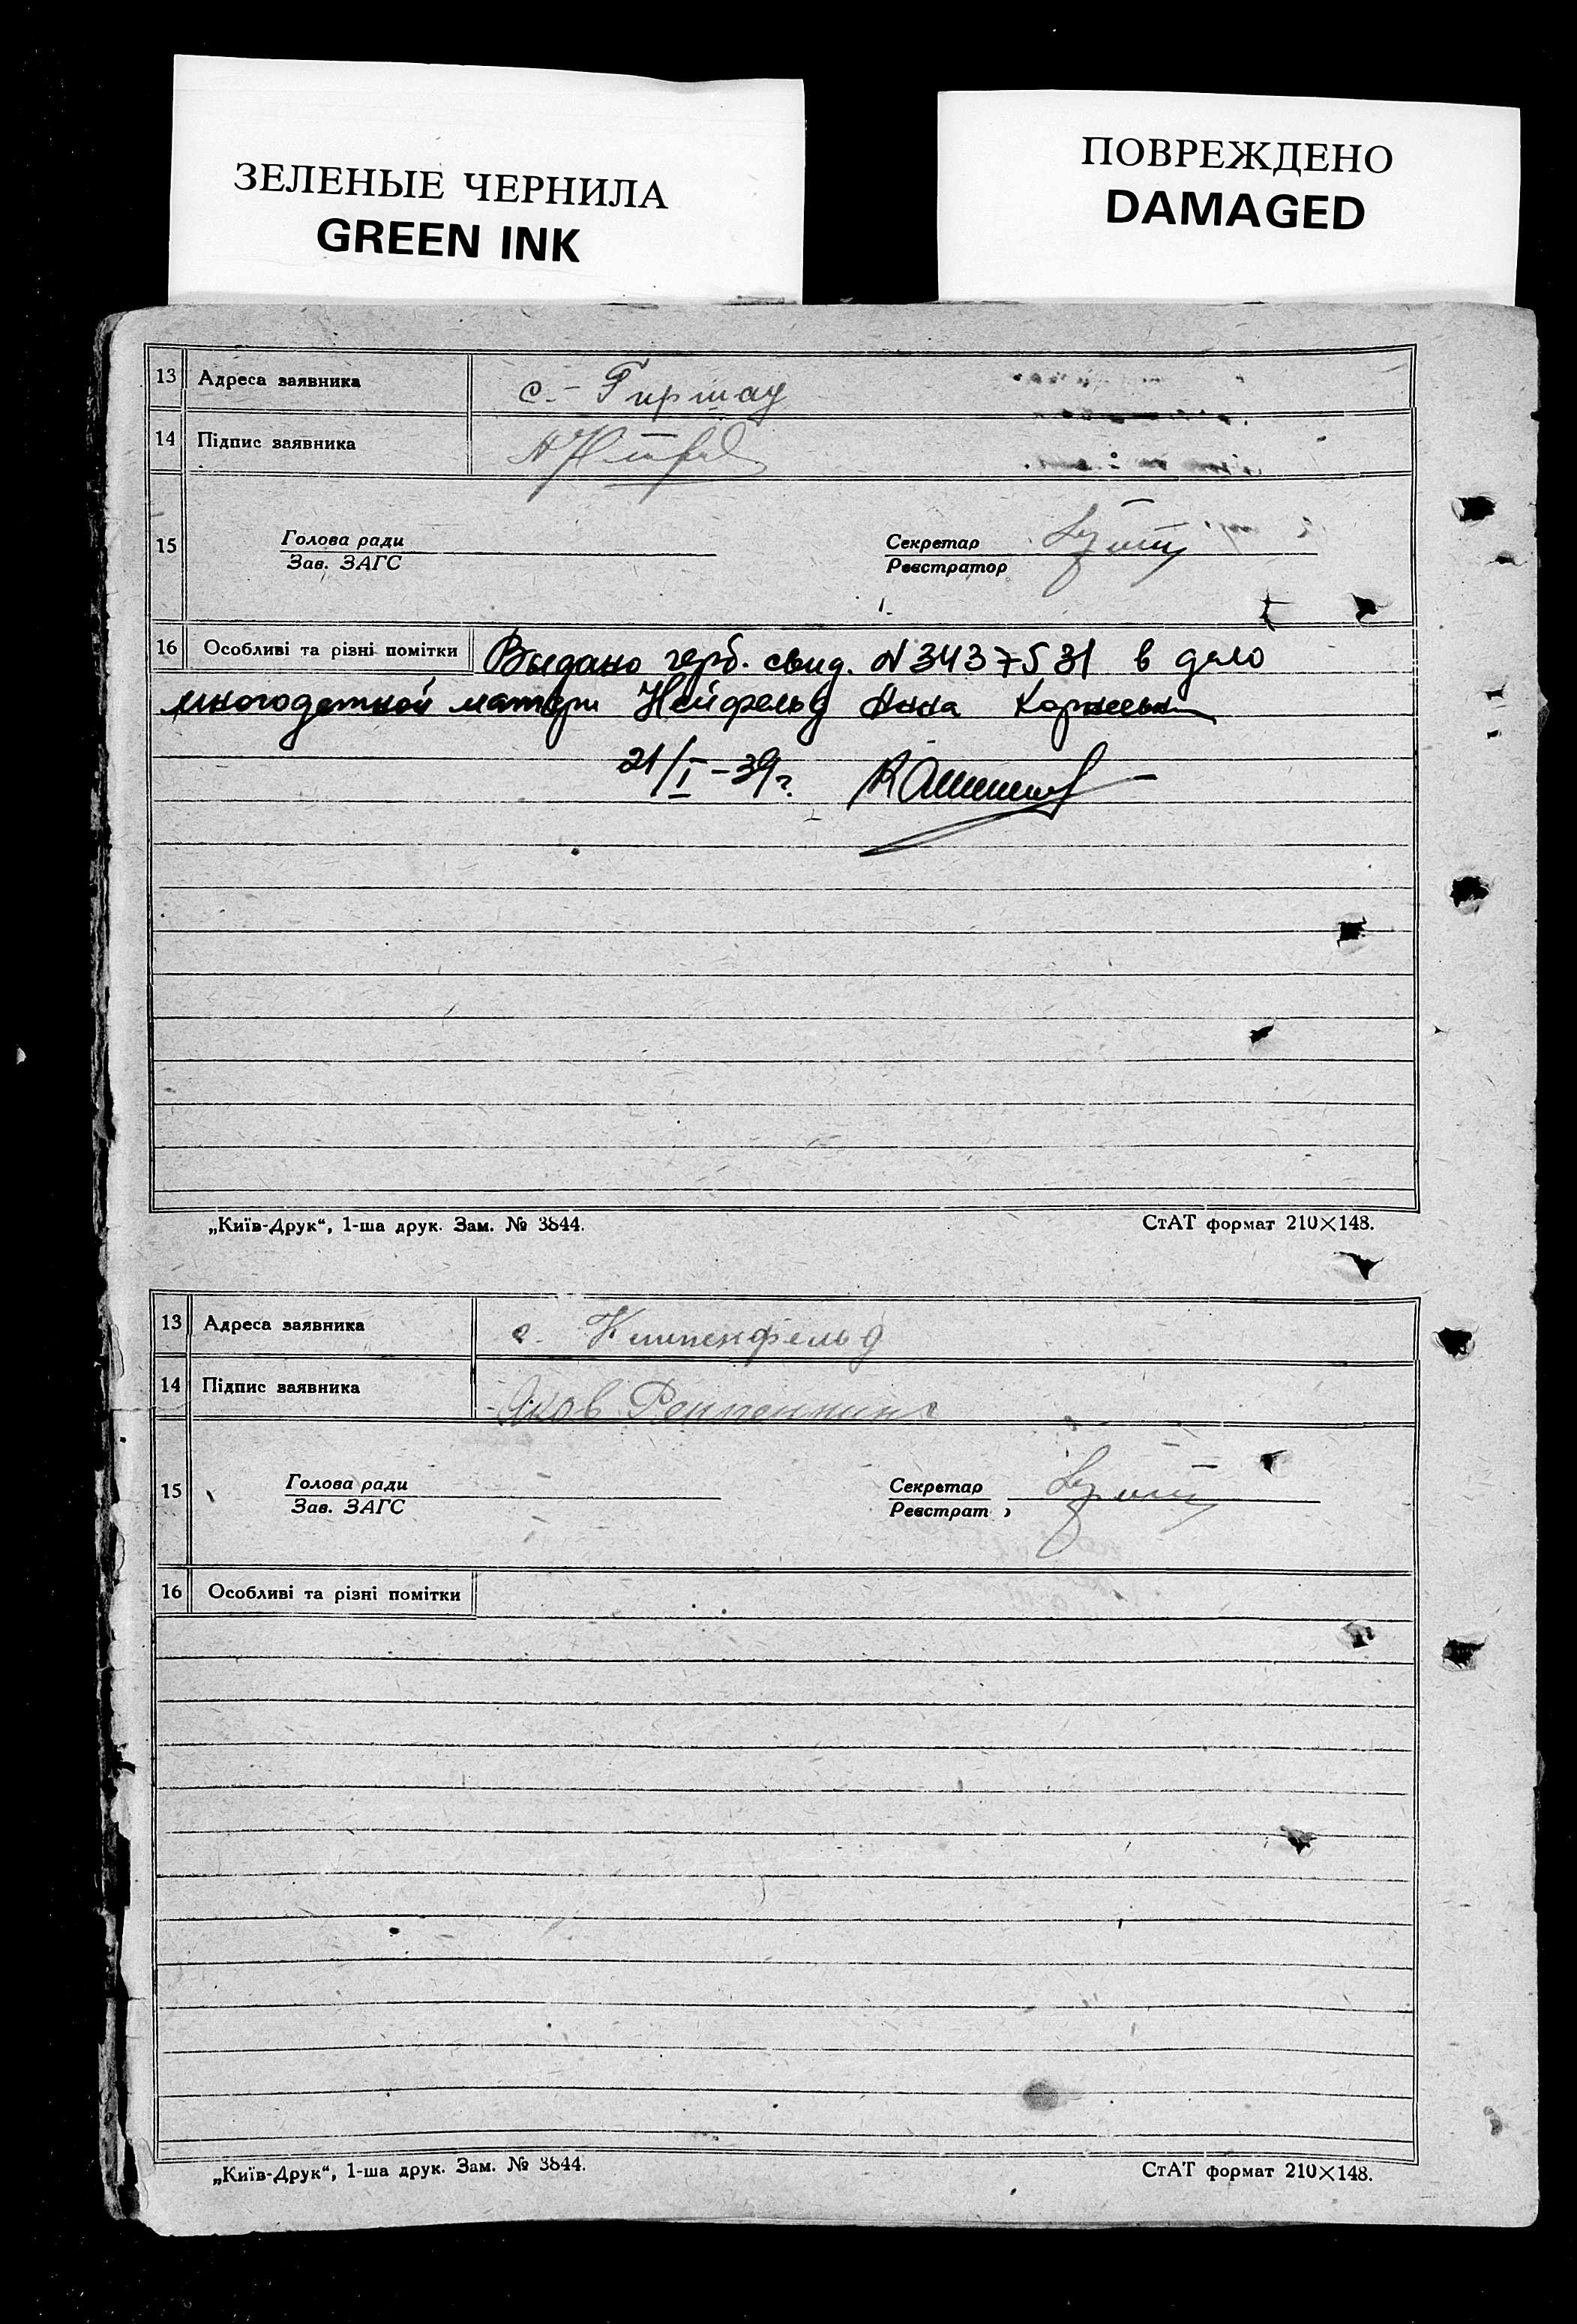 ЗЕЛЕНЫЕ ЧЕРНИЛА
GREEN INK
ПОВРЕЖДЕНО
DAMAGED
13 Адреса заявника с. - Гиршау
14 Підпис заявника
15 Голова ради
Зав. ЗАГС
Секретар
Реєстратор
16 Особливі та різні помітки Выдано герб. свид. N 3437531 в дело
многодетной матери Нейфельд Анна Корнеевна
21/I - 39 г.
„Київ-Друк“, 1-ша друк. Зам. № 3844. СтАТ формат 210×148.
13 Адреса заявника с.
14 Підпис заявника Яков
15 Голова ради
Зав. ЗАГС
Секретар
Реєстрат
16 Особливі та різні помітки
„Київ-Друк“, 1-ша друк. Зам. № 3844. СтАТ формат 210×148.